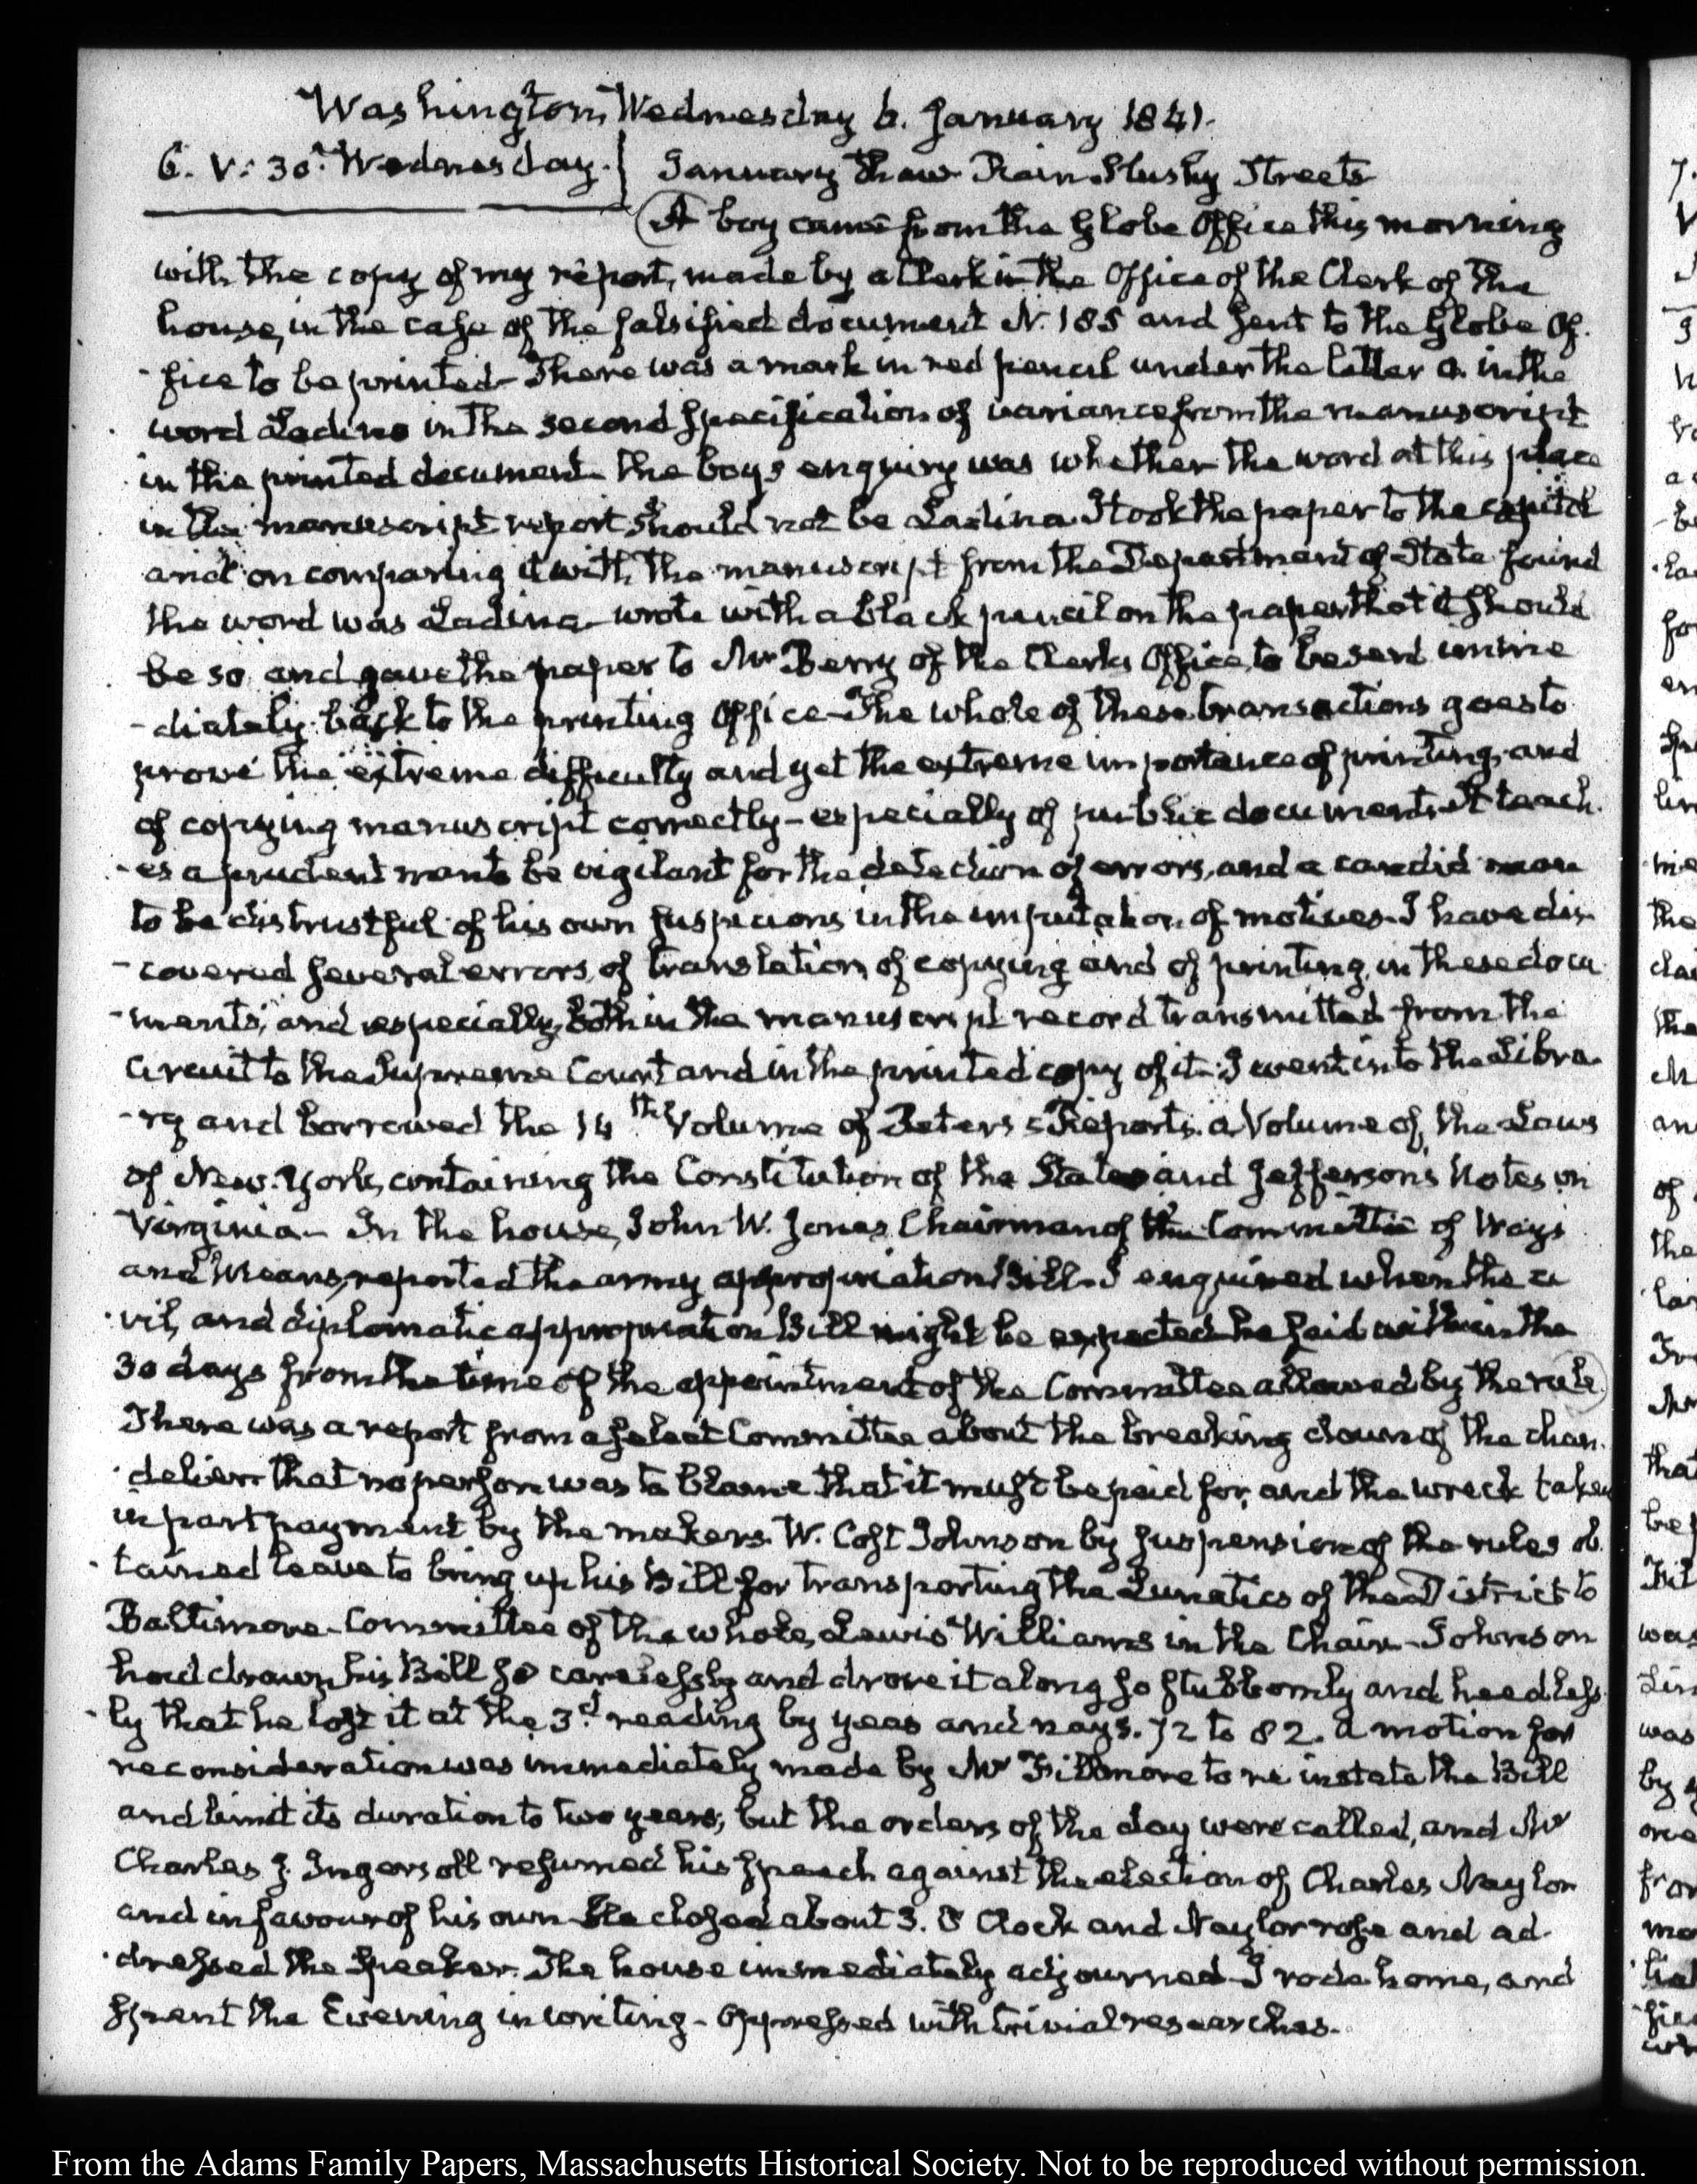 Washington, Wednesday 6. January 1841.
6. V: 30. Wednesday. } January thaw Rain. Slushy Streets
A boy came from the Globe Office this morning
with the copy of my report, made by a Clerk in the Office of the Clerk of the
house, in the case of the falsified document N. 185 and sent to the Globe Of-
-fice to be printed. There was a mark in red pencil under the letter a. in the
word Ladino in the second specification of variance from the manuscript
in the printed document. the boy's enquiry was whether the word at this place
in the manuscript report should not be Ladina. I took the paper to the capitol
and on comparing it with the manuscript from the Department of State found
the word was Ladina. wrote with a black pencil on the paper that it should
be so and gave the paper to Mr Berry of the Clerks Office, to be sent imme
-diately back to the printing Office. The whole of these transactions goes to
prove the extreme difficulty and yet the extreme importance of printing, and
of copying manuscript correctly - especially of public documents. It teach-
-es a prudent man to be vigilant for the detection of errors, and a candid man
to be distrustful of his own suspicions in the imputation of motives. I have dis-
-covered several errors, of translation, of copying and of printing, in these docu-
-ments, and especially, both in the manuscript record transmitted from the
Circuit to the Supreme Court and in the printed copy of it. I went into the Libra-
-ry and borrowed the 14th Volume of Peters's Reports. a Volume of the Laws
of New-York, containing the Constitution of the State and Jefferson's Notes on
Virginia - In the house, John W. Jones, Chairman of the Committee of Ways
and Means, reported the army appropriation Bill. I enquired when the ci
-vil, and diplomatic appropriation Bill might be expected he said within the
30 days from the time of the appointment of the Committee allowed by the rule.
There was a report from a select Committee about the breaking down of the chan-
-delier. that no person was to blame that it must be paid for, and the wreck taken
in part payment by the makers. W. Cost Johnson by suspension of the rules ob-
-tained leave to bring up his Bill for transporting the Lunatics of the District to
Baltimore - Committee of the whole, Lewis Williams in the Chair - Johnson
had drawn his Bill so carelessly and drove it along so stubbornly and heedless-
-ly that he lost it at the 3d reading by yeas and nays. 72 to 82. a motion for
reconsideration was immediately made by Mr Fillmore to re instate the Bill
and limit its duration to two years, but the orders of the day were called, and Mr
Charles J. Ingersoll resumed his speech against the election of Charles Naylor
and in favour of his own He closed about 3. O Clock and Naylor rose and ad-
-dressed the Speaker. The house immediately adjourned - I rode home, and
spent the Evening in writing - Oppressed with trivial researches.
From the Adams Family Papers, Massachusetts Historical Society. Not to be reproduced without permission.